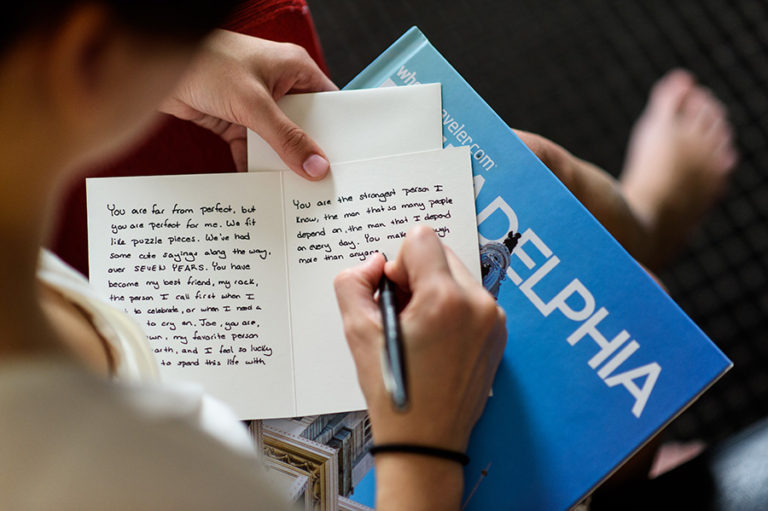 You are far from perfect, but
you are perfect for me. We fit
like puzzle pieces. We've had
some cute sayings along the way,
over SEVEN YEARS. You have
become my best friend, my rock,
the person I call first when I
to celebrate, or when I need a
to cry on. Joe, you are,
my favorite person
and I feel so lucky
to spend this life with
You are the strongest person I
know, the man that so many people
depend on, the man that I depend
on every day. You make
more than anyone
traveler.com
ADELPHIA